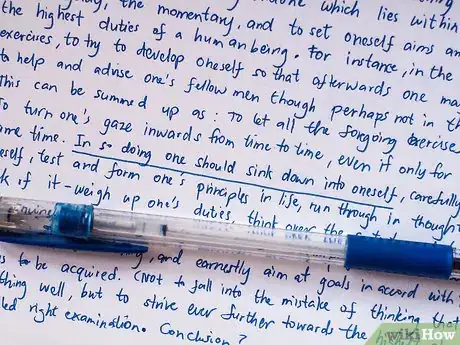 the momentary, and to set oneself aims an
the highest duties of a human being. For instance, in the
exercises, to try to develop oneself so that afterwards one ma
to help and advise one's fellow men though perhaps not in th
This can be summed up as: To let all the forgoing exercise
To turn one's gaze inwards from time to time, even if only for
ame time. In so doing one should sink down into oneself, carefully
eself, test and form one's principles in life, run through in thought
k of it - weigh up one's duties, think over the
and earnestly aim at goals in accord with
s to be acquired. (Not to fall into the mistake of thinking that
thing well, but to strive ever further towards the
led right examination. Conclusion?
wikiHow